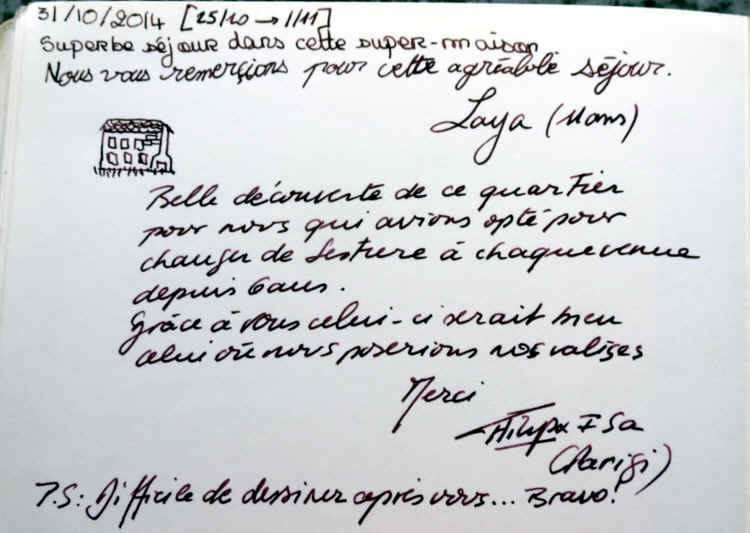 31/10/2014 [25/10 → 1/11]
Superbe séjour dans cette super-maison
Nous vous remerçions pour cette agréable séjour.
Laya (11 ans)
Belle découverte de ce quartier
pour nous qui avions opté pour
changer de Sestiere à chaque venue
depuis 6 ans.
Grâce à vous celui-ci serait bien
celui où nous poserions nos valises
Merci
Isa
(Parigi)
P.S: Difficile de dessiner après vous... Bravo!